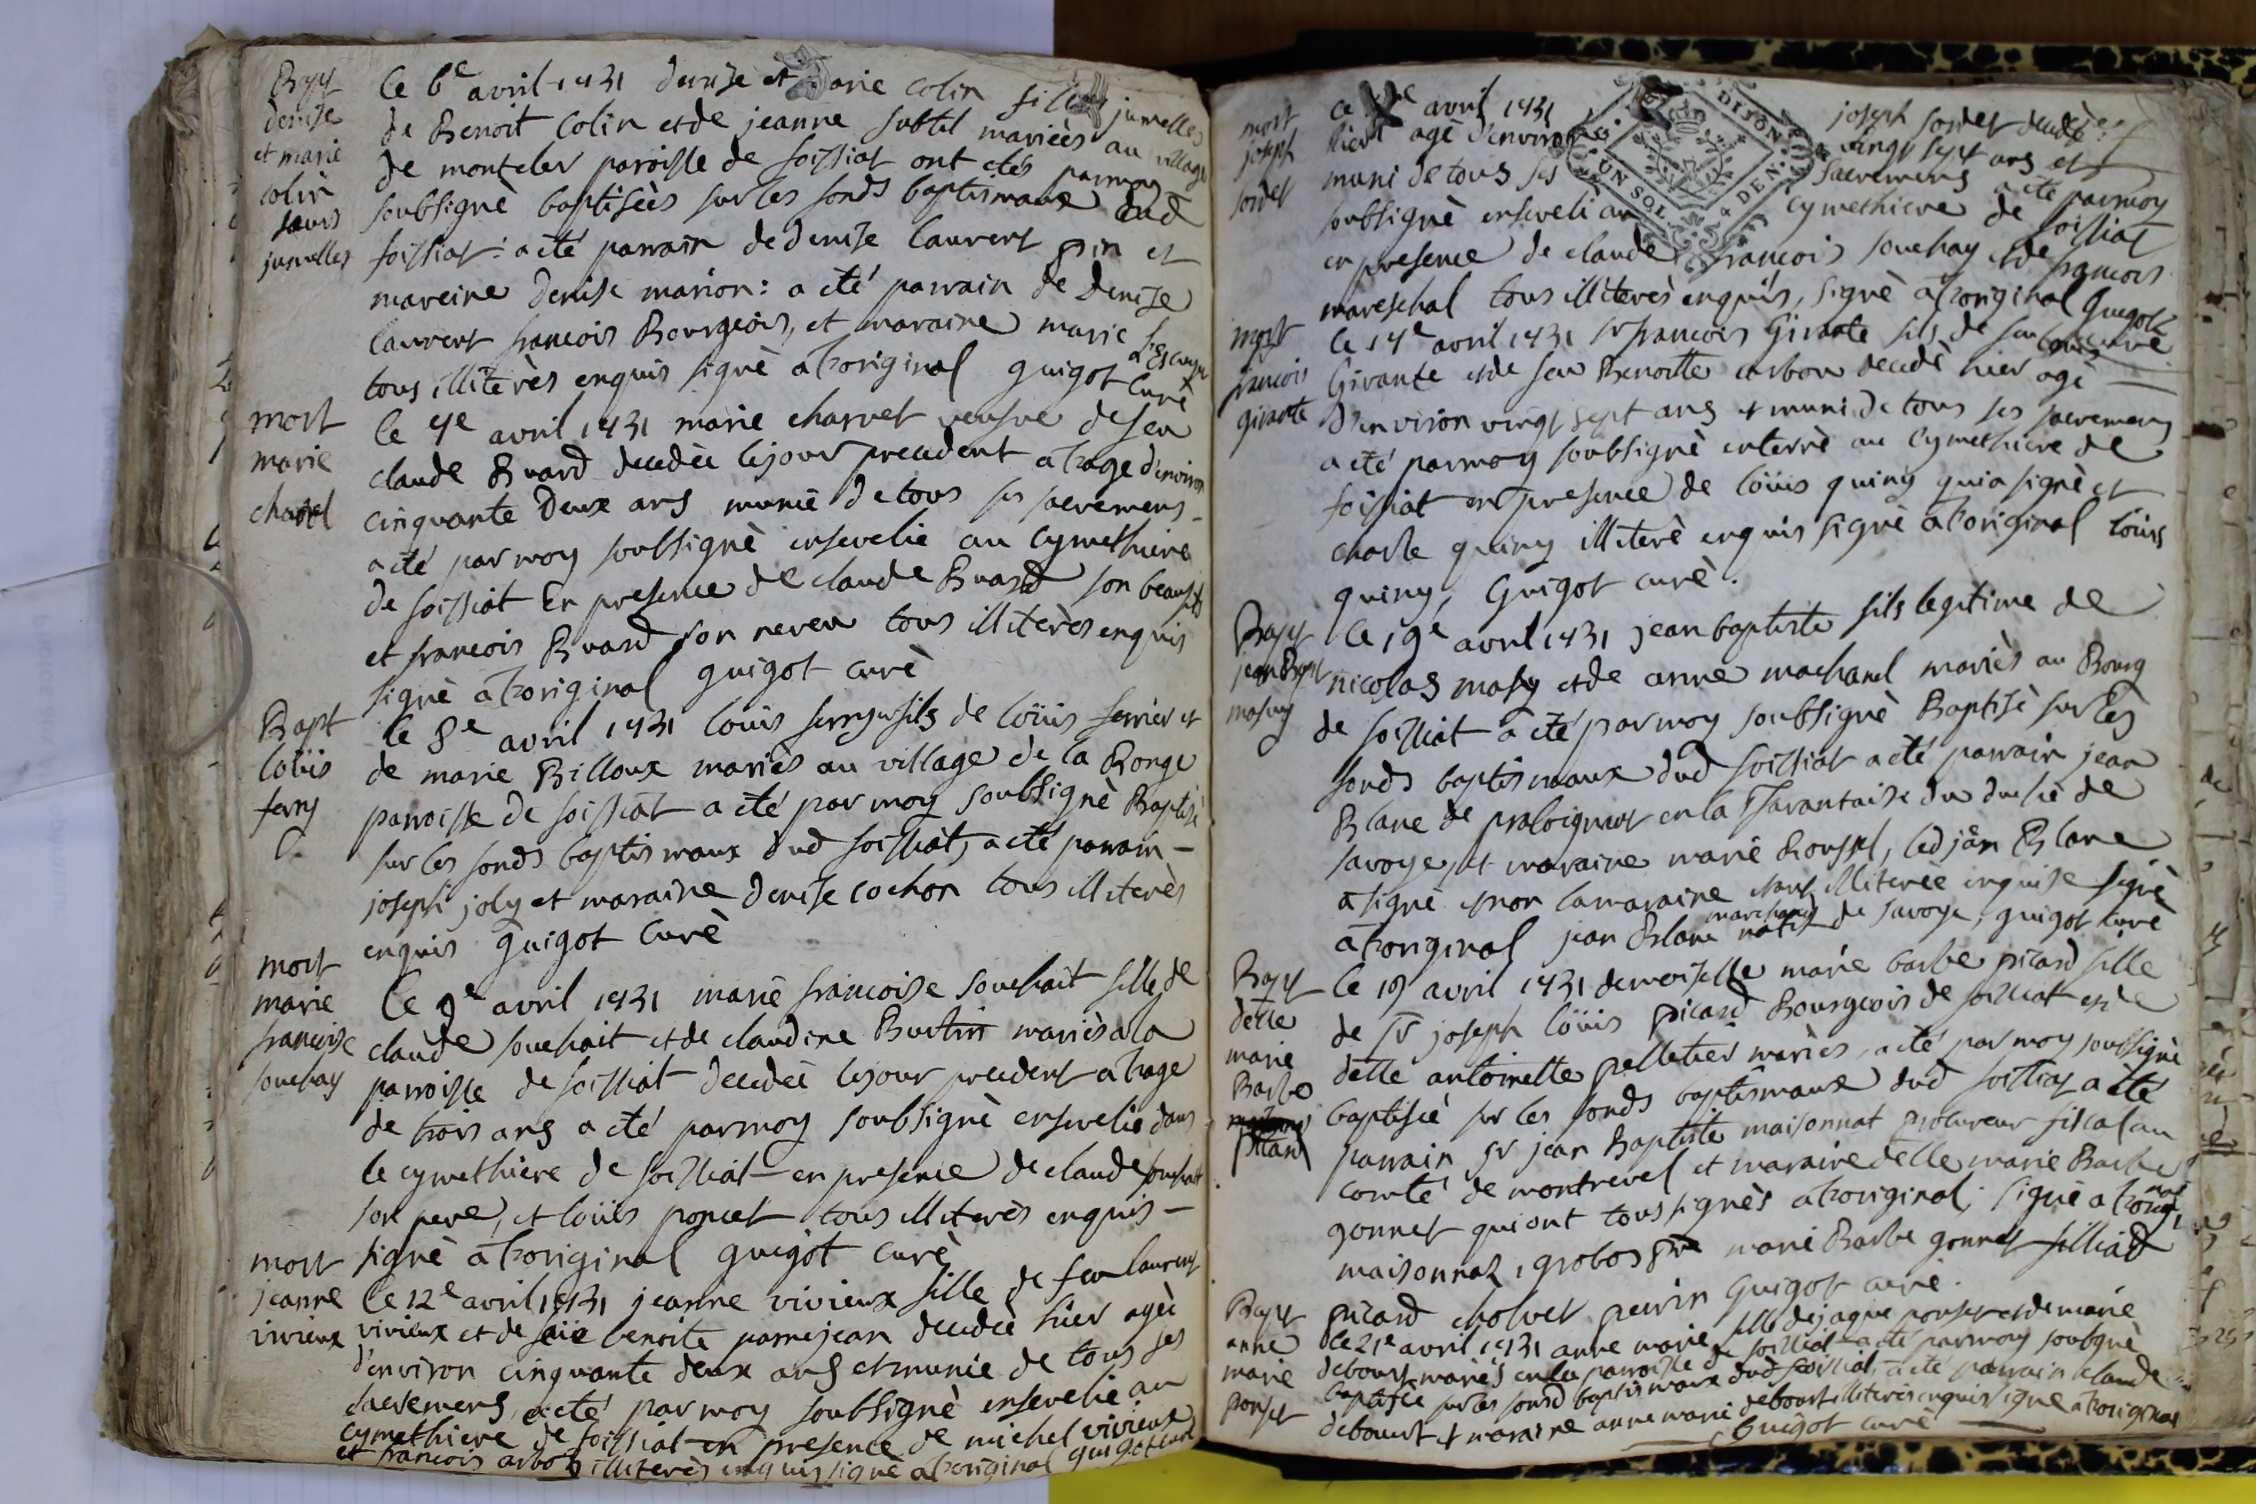 Bapt
denise
et marie
colin
sœurs
jumelles
Ce 6e avril 1731 denise et marie colin filles jumelles
de Benoit Colin et de jeanne subtil mariès au village
de monteler paroisse de foissiat ont etés parmoy
soubsignè baptisèès sur les fonds baptismaux dud
foissiat : a eté parrain de denise laurent pin et
mareine denise marion : a eté parrain de denise
laurent francois Bourgeois, et maraine marie
tous illiterès enquis signè a l'original guigot Curè
mort
marie
charvel
le 7e avril 1731 marie charvet veusve de feu
claude Buard decedèe le jour precedent a l'age d'environ
cinquante deux ans munie de tous ses sacremens
a eté par moy soubsignè ensevelie au cymethiere
de foissiat En presence de claude Buard son beaufils
et francois Buard son neveu tous illiterès enquis
signè a l'original guigot curè
Bapt
loüis
ferry
le 8e avril 1731 louis fils de loüis ferrier et
de marie Billoux mariès au village de la Ronge
parroisse de foissiat a eté par moy soubsignè Baptisè
sur les fonds baptismaux dud foissiat, a eté parrain
joseph joly et maraine denise cochon tous illiterès
enquis guigot Curè
mort
marie
francoise
souchay
le 9e avril 1731 marie francoise souchait fille de
claude souchait et de claudine Burtin mariès a la
parroisse de foissiat decedèè le jour precedent a l'age
de trois ans a eté parmoy soubsignè ensevelie dans
le cymethiere de foissiat en presence de claude souchait
son pere, et loüis poncet tous illiterès enquis
signè a l'original guigot curè
mort
jeanne
vivieux
le 12e avril 1731 jeanne vivieux fille de feu laurent
vivieux et de benoite pamejean decedèè hier agèè
d'environ cinquante deux ans et munie de tous ses
sacremens, a eté par moy soubsignè ensevelie au
cymethiere de foissiat en presence de michel vivieux
et francois arbot illiterès enquis signè a l'original guigot curè
mort
joseph
sordet
ce avril 1731 joseph sordet decedè
hier agè d'environ vingt sept ans et
muni de tous ses sacremens a eté parmoy
soubsignè enseveli au cymethiere de foissiat
en presence de claude francois souchay et de francois
mareschal tous illiterès enquis, signè a l'original Guigot
curè
mort
francois
girante
le 17e avril 1731 sr francois Girante fils de feu
Girante et de feu Benoitte carbon decedè hier agè
d'environ vingt sept ans et muni de tous ses sacremens
a eté parmoy soubsignè enterrè au Cymethiere de
foissiat en presence de loüis quiny qui a signè et
charle quiny illiterè enquis signè a l'original loüis
quiny, Guigot curè.
Bapt
jean Bapt
masuy
le 19e avril 1731 jean baptiste fils legitime de
nicolas masuy et de anne machard mariès au Bourg
de foissiat a eté parmoy soubsignè Baptisè sur les
fonds baptismaux dud foissiat a eté parrain jean
Blanc de pralognant en la Tarantaise du duchè de
savoye, et maraine marie Roussel, led jean Blanc
a signè et non la maraine etant illiteree enquise signè
a l'original jean Blanc marchand natif de savoye, guigot curè
Bapt
delle
marie
Barbe
picard
le 19 avril 1731 demoiselle marie barbe picard fille
de sr joseph loüis picard Bourgeois de foissiat et de
delle antoinette pelletier mariès, a eté par moy soubsignè
baptisèè sur les fonds baptismaux dud foissiat a eté
parrain sr jean Baptiste maisonnat procureur fiscal au
comté de montrevel et maraine delle marie Barbe
gonnet qui ont tous signès a l'original, signè a l'original
maisonnat, grobos marie Barbe gonnet filliard
picard cholvet perrin Guigot curè.
Bapt
anne
marie
ponset
le 21e avril 1731 anne marie fille de jaque ponset et de marie
debourt mariés en la parroisse de foissiat a eté parmoy soubsignè
baptisèè sur les fonds baptismaux dud foissiat, a eté parrain claude
debourt et maraine anne marie debourt illiterès enquis signè a l'original
Guigot curè
DIJON
UN SOL
DEN.